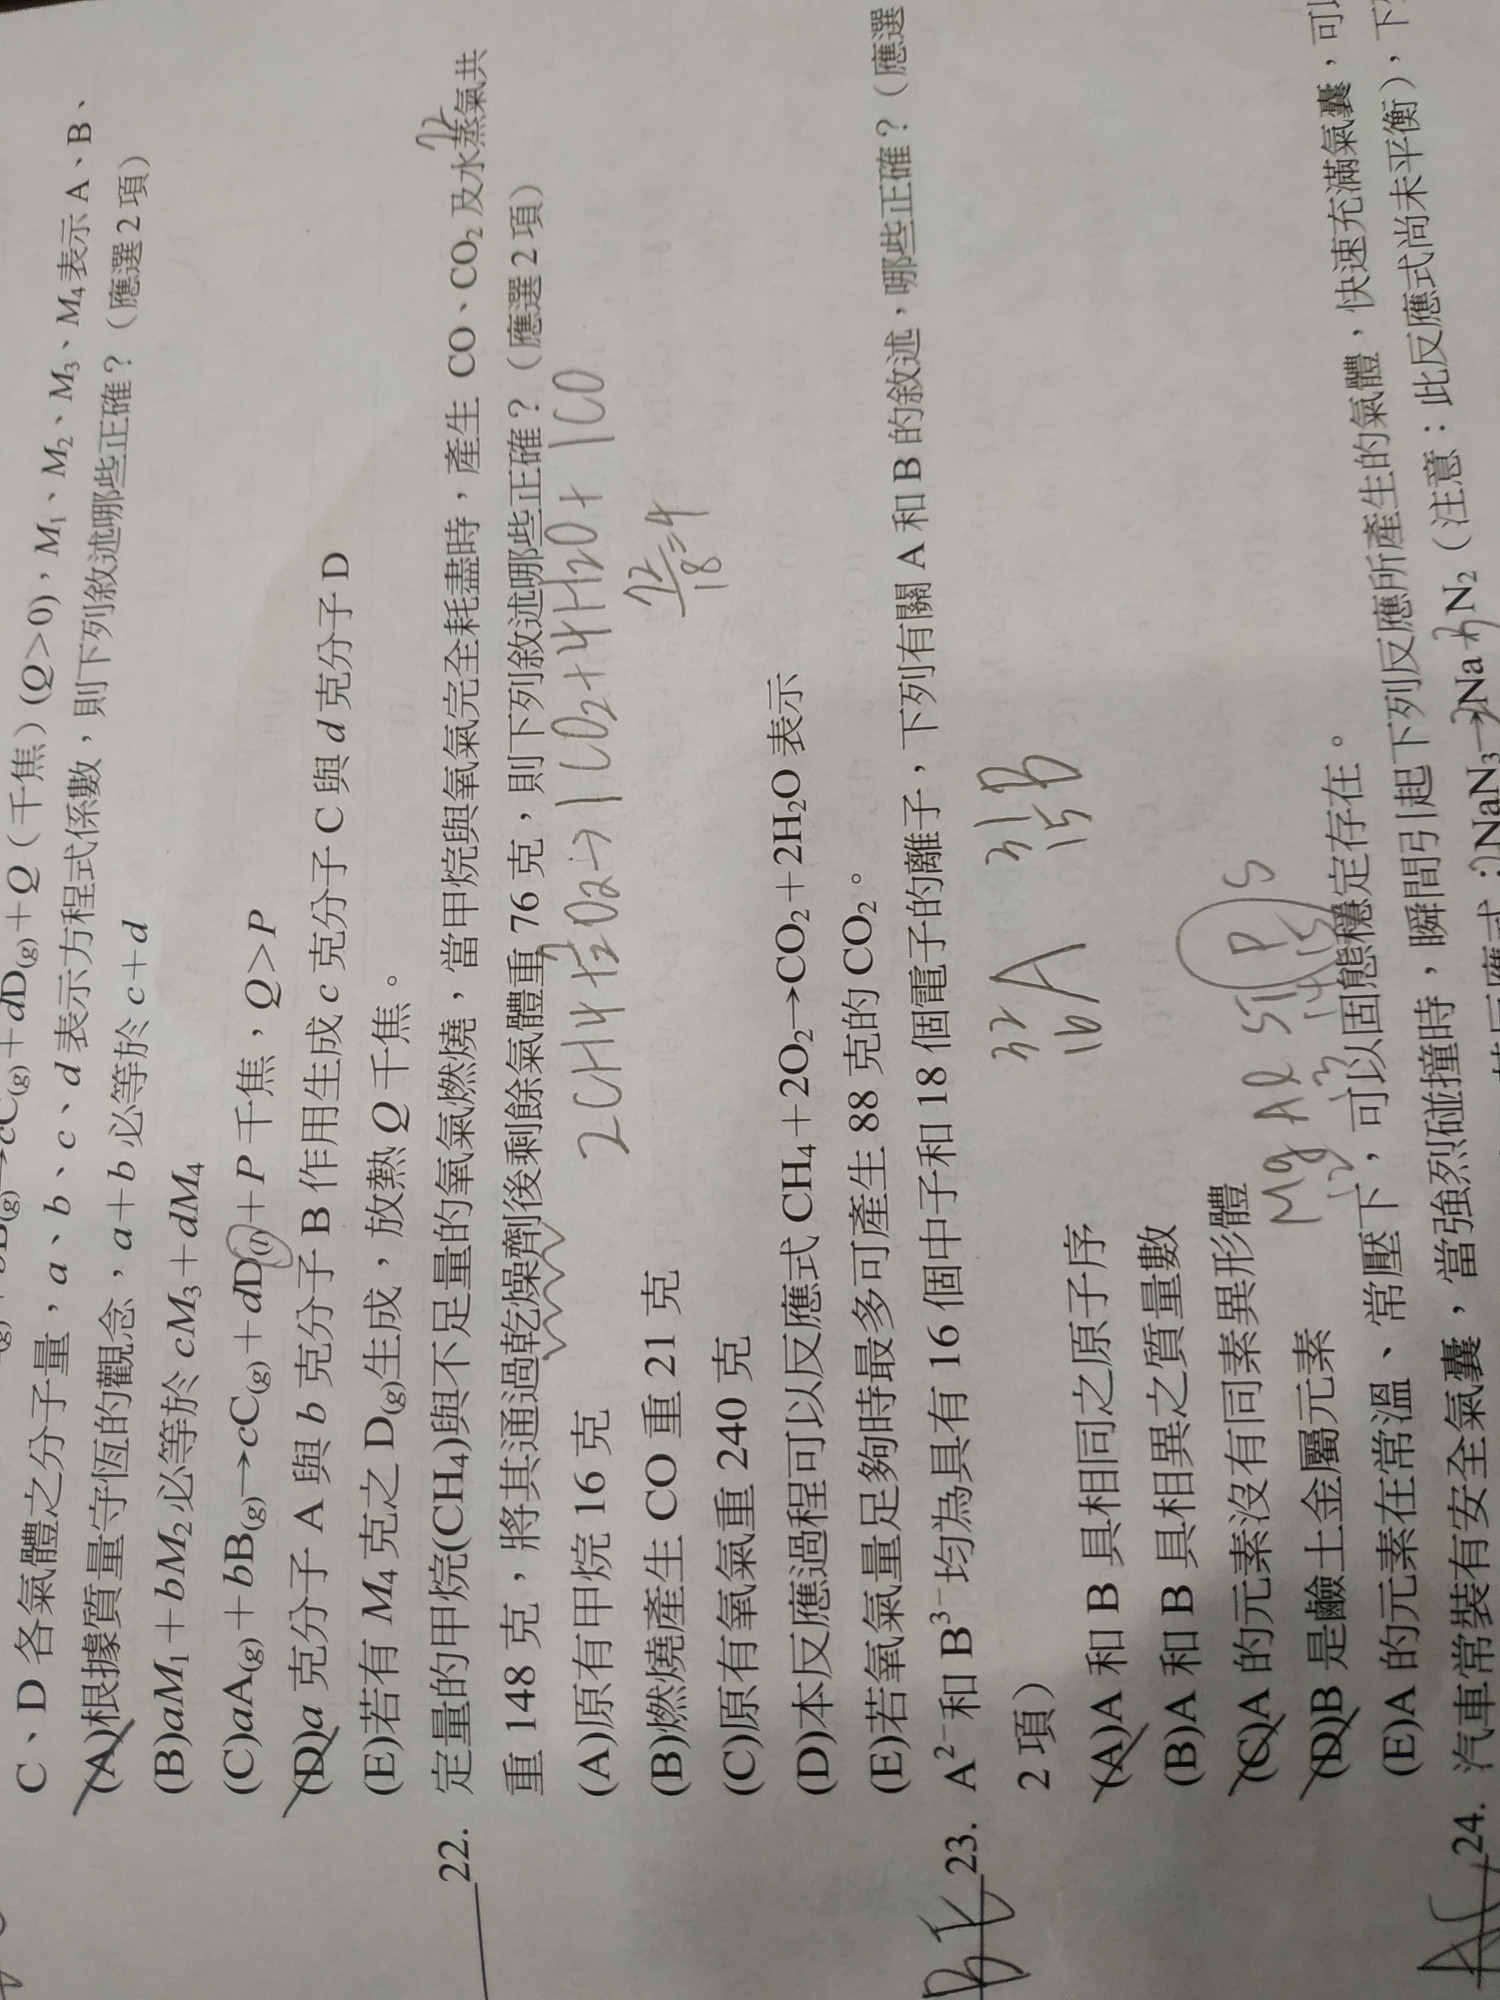 C、D 各氣體之分子量，a、b、c、d 表示方程式係數，則下列敘述哪些正確？（應選 2 項）
(A)根據質量守恆的觀念，a＋b 必等於 c＋d
(B)aM₁＋bM₂必等於 cM₃＋dM₄
(C)aA(g)＋bB(g)→cC(g)＋dD(l)＋P 千焦，Q＞P
(D)a 克分子 A 與 b 克分子 B 作用生成 c 克分子 C 與 d 克分子 D
(E)若有 M₄克之 D(g)生成，放熱 Q 千焦。
22. 定量的甲烷(CH₄)與不足量的氧氣燃燒，當甲烷與氧氣完全耗盡時，產生 CO、CO₂及水蒸氣共
72
重 148 克，將其通過乾燥劑後剩餘氣體重 76 克，則下列敘述哪些正確？（應選 2 項）
2CH4 O2→1CO2+4H2O+1CO
72/18=4
(A)原有甲烷 16 克
(B)燃燒產生 CO 重 21 克
(C)原有氧氣重 240 克
(D)本反應過程可以反應式 CH₄＋2O₂→CO₂＋2H₂O 表示
(E)若氧氣量足夠時最多可產生 88 克的 CO₂。
BE 23. A²⁻和 B³⁻均為具有 16 個中子和 18 個電子的離子，下列有關 A 和 B 的敘述，哪些正確？（應選
2 項）
32 16 A 31 15 B
(A)A 和 B 具相同之原子序
(B)A 和 B 具相異之質量數
(C)A 的元素沒有同素異形體
Mg Al Si P S
12 13 14 15
(D)B 是鹼土金屬元素
(E)A 的元素在常溫、常壓下，可以固態穩定存在。
24. 汽車常裝有安全氣囊，當強烈碰撞時，瞬間引起下列反應所產生的氣體，快速充滿氣囊，可
NaN₃→2Na＋3N₂（注意：此反應式尚未平衡），下